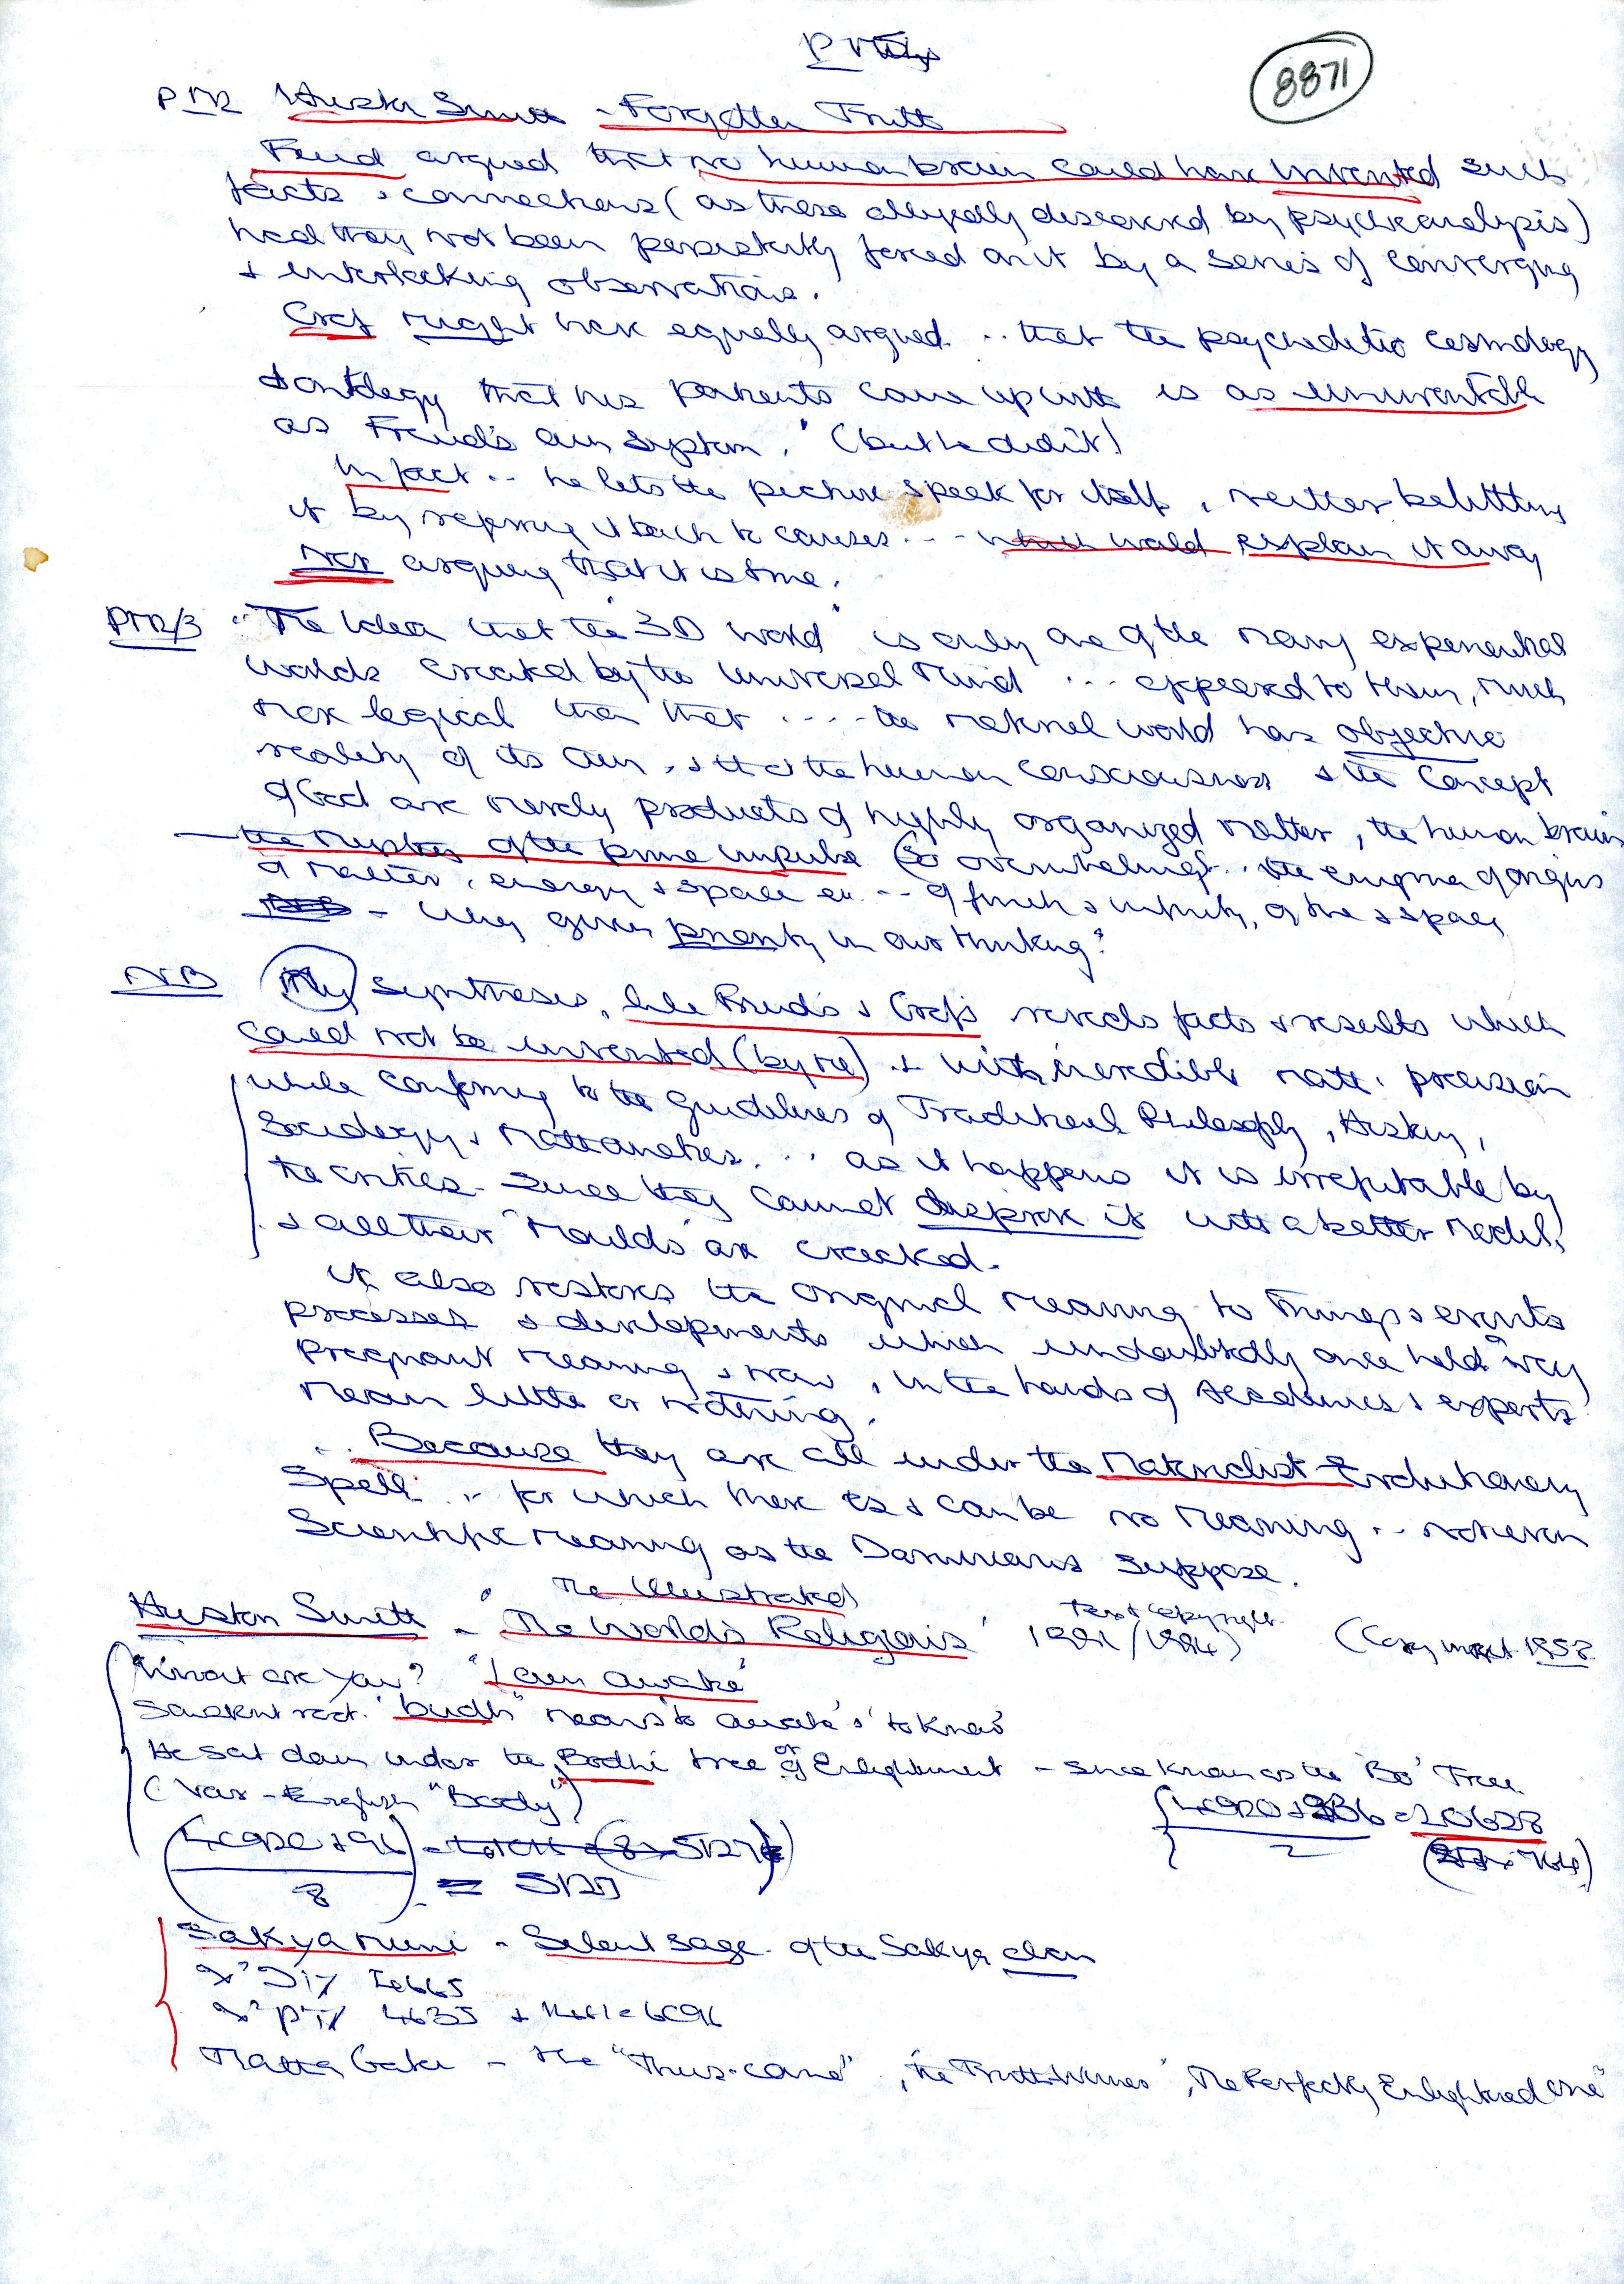 8871
Huston Smith - Forgotten Truth
Freud argued that no human brain could have invented such
facts & connections (as these allegedly discovered by psychoanalysis)
had they not been persistently forced on it by a series of converging
& interlocking observations.
Grof might have equally argued .. that the psychedelic cosmology
& ontology that his patients came up with is as uninventable
as Freud's own system.' (but he didn't)
In fact .. he lets the picture speak for itself, neither belittling
it by referring it back to causes ... which would explain it away
nor arguing that it is true.
"The idea that the "3D world" is only one of the many experiential
worlds created by the Universal Mind ... appeared to them, much
more logical than that .... the material world has objective
reality of its own, & that the human consciousness & the concept
of God are merely products of highly organized matter, the human brain
- the mystery of the prime impulse (so overwhelming) .. the enigma of origins
of matter, energy & space .. of finite & infinity, of time & space,
- Why given priority in our thinking?
NB My synthesis, like Freud's & Grof's reveals facts & results which
could not be invented (by me) & with incredible math. precision
while conforming to the guidelines of Traditional Philosophy, History,
Sociology & Mathematics ... as it happens it is irrefutable by
the critics - since they cannot disprove it with a better model,
& all their 'moulds' are cracked.
It also restores the original meaning to things & events
processes & developments which undoubtedly once held very
pregnant meaning & now, in the hands of Academics & experts
mean little or nothing.
.. Because they are all under the Materialist-Evolutionary
Spell .. for which there is & can be no meaning .. not even
Scientific meaning as the Darwinians suppose.
Huston Smith - 'The Illustrated
The World's Religions' Text copyright 1991/1994) (Copyright 1958
What are you? "I am awake"
Sanskrit root 'budh' means 'to awake' & 'to know'
He sat down under the Bodhi tree or of Enlightenment - since known as the 'Bo' Tree
(Var - English "Body")
8 = 512
2 = 20628
Sakyamuni - Silent sage of the Sakya clan
- the "Thus-come", 'the Truth-Winner', 'The Perfectly Enlightened One"